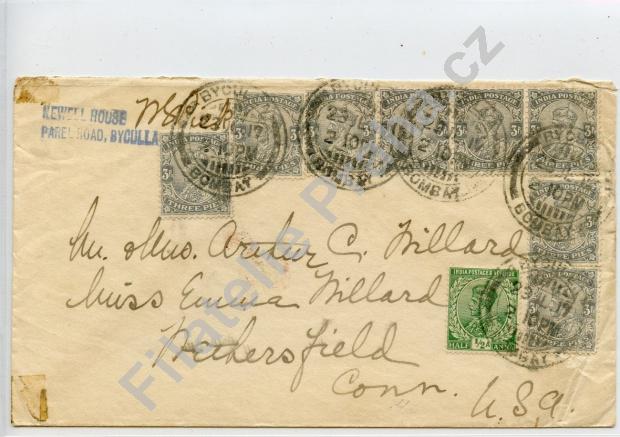 NEWELL HOUSE
PAREL ROAD, BYCULLA
INDIA POSTAGE
3P
THREE PIES
BYCULLA
BOMBAY
2-10PM
Mr. Mrs. Arthur C. Willard
Miss Emma Willard
Wethersfield
Conn.
U.S.A.
INDIA POSTAGE & REVENUE
HALF ½A ANNA
Filatelie Praha.cz